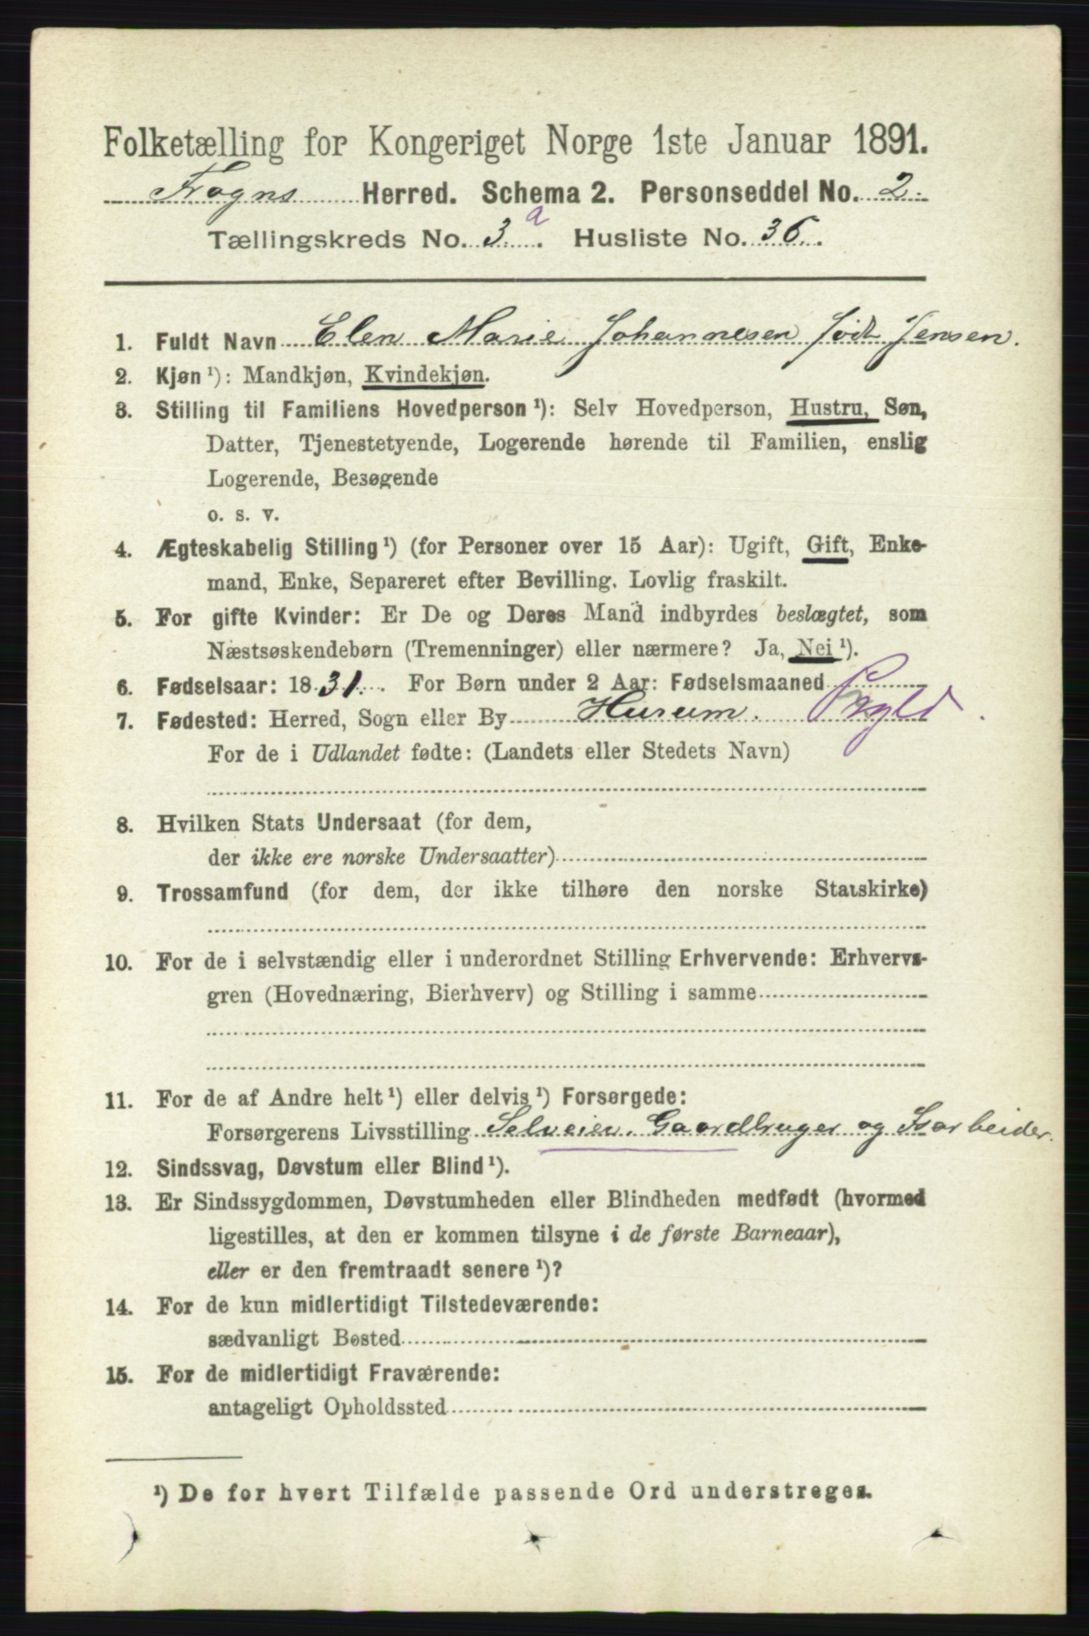 Folketælling for Kongeriget Norge 1ste Januar 1891.
Frogns Herred. Schema 2. Personseddel No. 2.
Tællingskreds No. 3 a. Husliste No. 36.
1. Fuldt Navn Elen Marie Johannesen født Jensen.
2. Kjøn ¹): Mandkjøn, Kvindekjøn.
3. Stilling til Familiens Hovedperson ¹): Selv Hovedperson, Hustru, Søn,
Datter, Tjenestetyende, Logerende hørende til Familien, enslig
Logerende, Besøgende
o. s. v.
4. Ægteskabelig Stilling ¹) (for Personer over 15 Aar): Ugift, Gift, Enke-
mand, Enke, Separeret efter Bevilling. Lovlig fraskilt.
5. For gifte Kvinder: Er De og Deres Mand indbyrdes beslægtet, som
Næstsøskendebørn (Tremenninger) eller nærmere? Ja, Nei ¹).
6. Fødselsaar: 1831. For Børn under 2 Aar: Fødselsmaaned
7. Fødested: Herred, Sogn eller By Hurum.
For de i Udlandet fødte: (Landets eller Stedets Navn)
8. Hvilken Stats Undersaat (for dem,
der ikke ere norske Undersaatter)
9. Trossamfund (for dem, der ikke tilhøre den norske Statskirke)
10. For de i selvstændig eller i underordnet Stilling Erhvervende: Erhvervs-
gren (Hovednæring, Bierhverv) og Stilling i samme
11. For de af Andre helt ¹) eller delvis ¹) Forsørgede:
Forsørgerens Livsstilling Selveier. Gaardbruger og Isarbeider.
12. Sindssvag, Døvstum eller Blind ¹).
13. Er Sindssygdommen, Døvstumheden eller Blindheden medfødt (hvormed
ligestilles, at den er kommen tilsyne i de første Barneaar),
eller er den fremtraadt senere ¹)?
14. For de kun midlertidigt Tilstedeværende:
sædvanligt Bosted
15. For de midlertidigt Fraværende:
antageligt Opholdssted
¹) De for hvert Tilfælde passende Ord understreges.